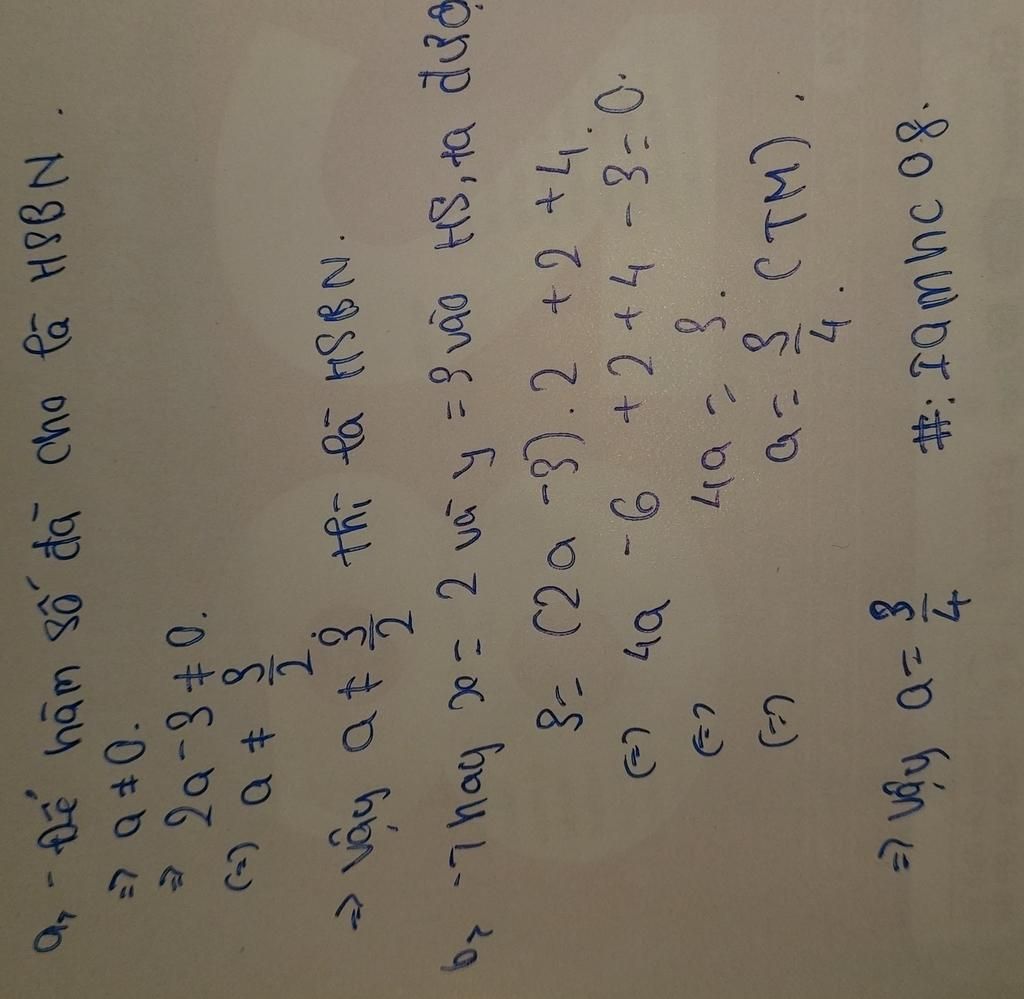 a, - Để hàm số đã cho là HSBN.
=> a ≠ 0.
=> 2a - 3 ≠ 0.
(=) a ≠ 3/2
=> vậy a ≠ 3/2 thì là HSBN.
b, - Thay x = 2 và y = 3 vào HS, ta đượ
3 = (2a - 3). 2 + 2 + 4.
(=) 4a - 6 + 2 + 4 - 3 = 0.
(=) 4a = 3.
(=) a = 3/4. (TM).
=> vậy a = 3/4 #: Iamnc 08.